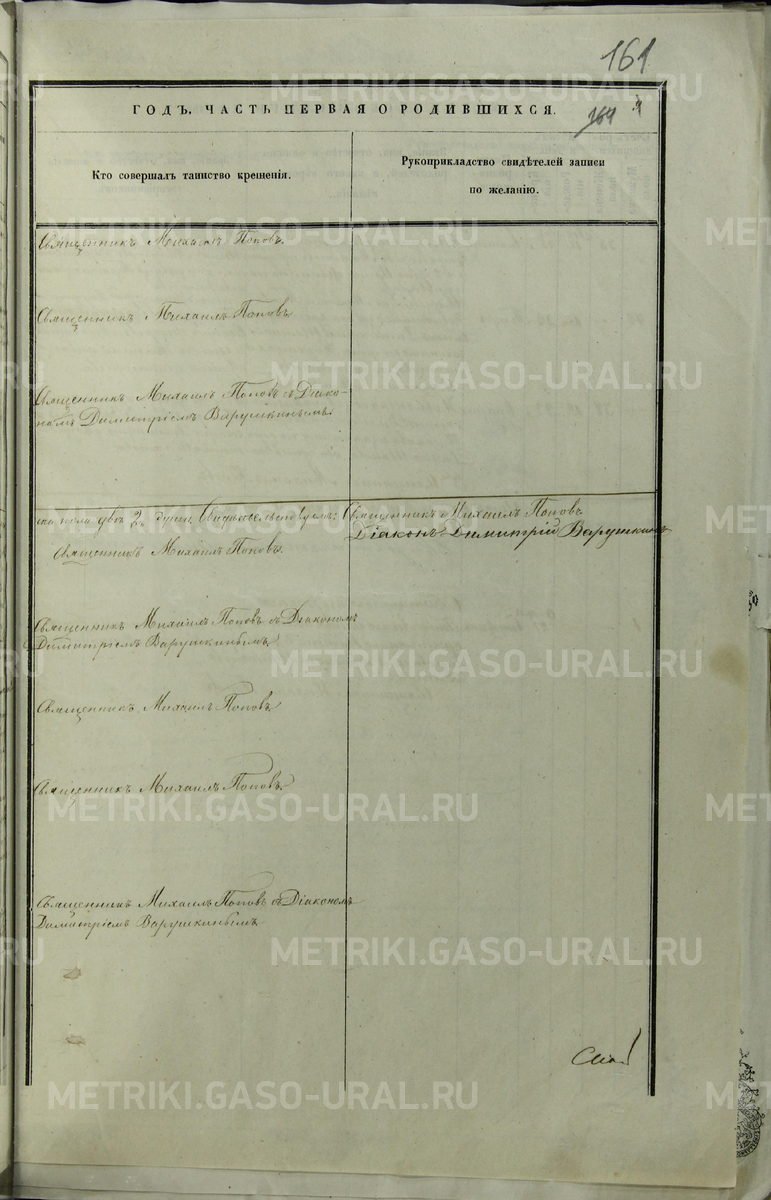 161
ГОДЪ. ЧАСТЬ ПЕРВАЯ О РОДИВШИХСЯ.
164
Кто совершалъ таинство крещенія.
Рукоприкладство свидѣтелей записи
по желанію.
Священникъ Михаилъ Поповъ.
Священникъ Михаилъ Поповъ
Священникъ Михаилъ Поповъ съ Діако-
номъ Димитріемъ Варушкинымъ.
пола двѣ 2. души. Свидѣтельствуемъ: Священникъ Михаилъ Поповъ
Діаконъ Димитрій Варушкинъ
Священникъ Михаилъ Поповъ.
Священникъ Михаилъ Поповъ съ Діакономъ
Димитріемъ Варушкинымъ.
Священникъ Михаилъ Поповъ
Священникъ Михаилъ Поповъ.
Священникъ Михаилъ Поповъ съ Діакономъ
Димитріемъ Варушкинымъ
METRIKI.GASO-URAL.RU